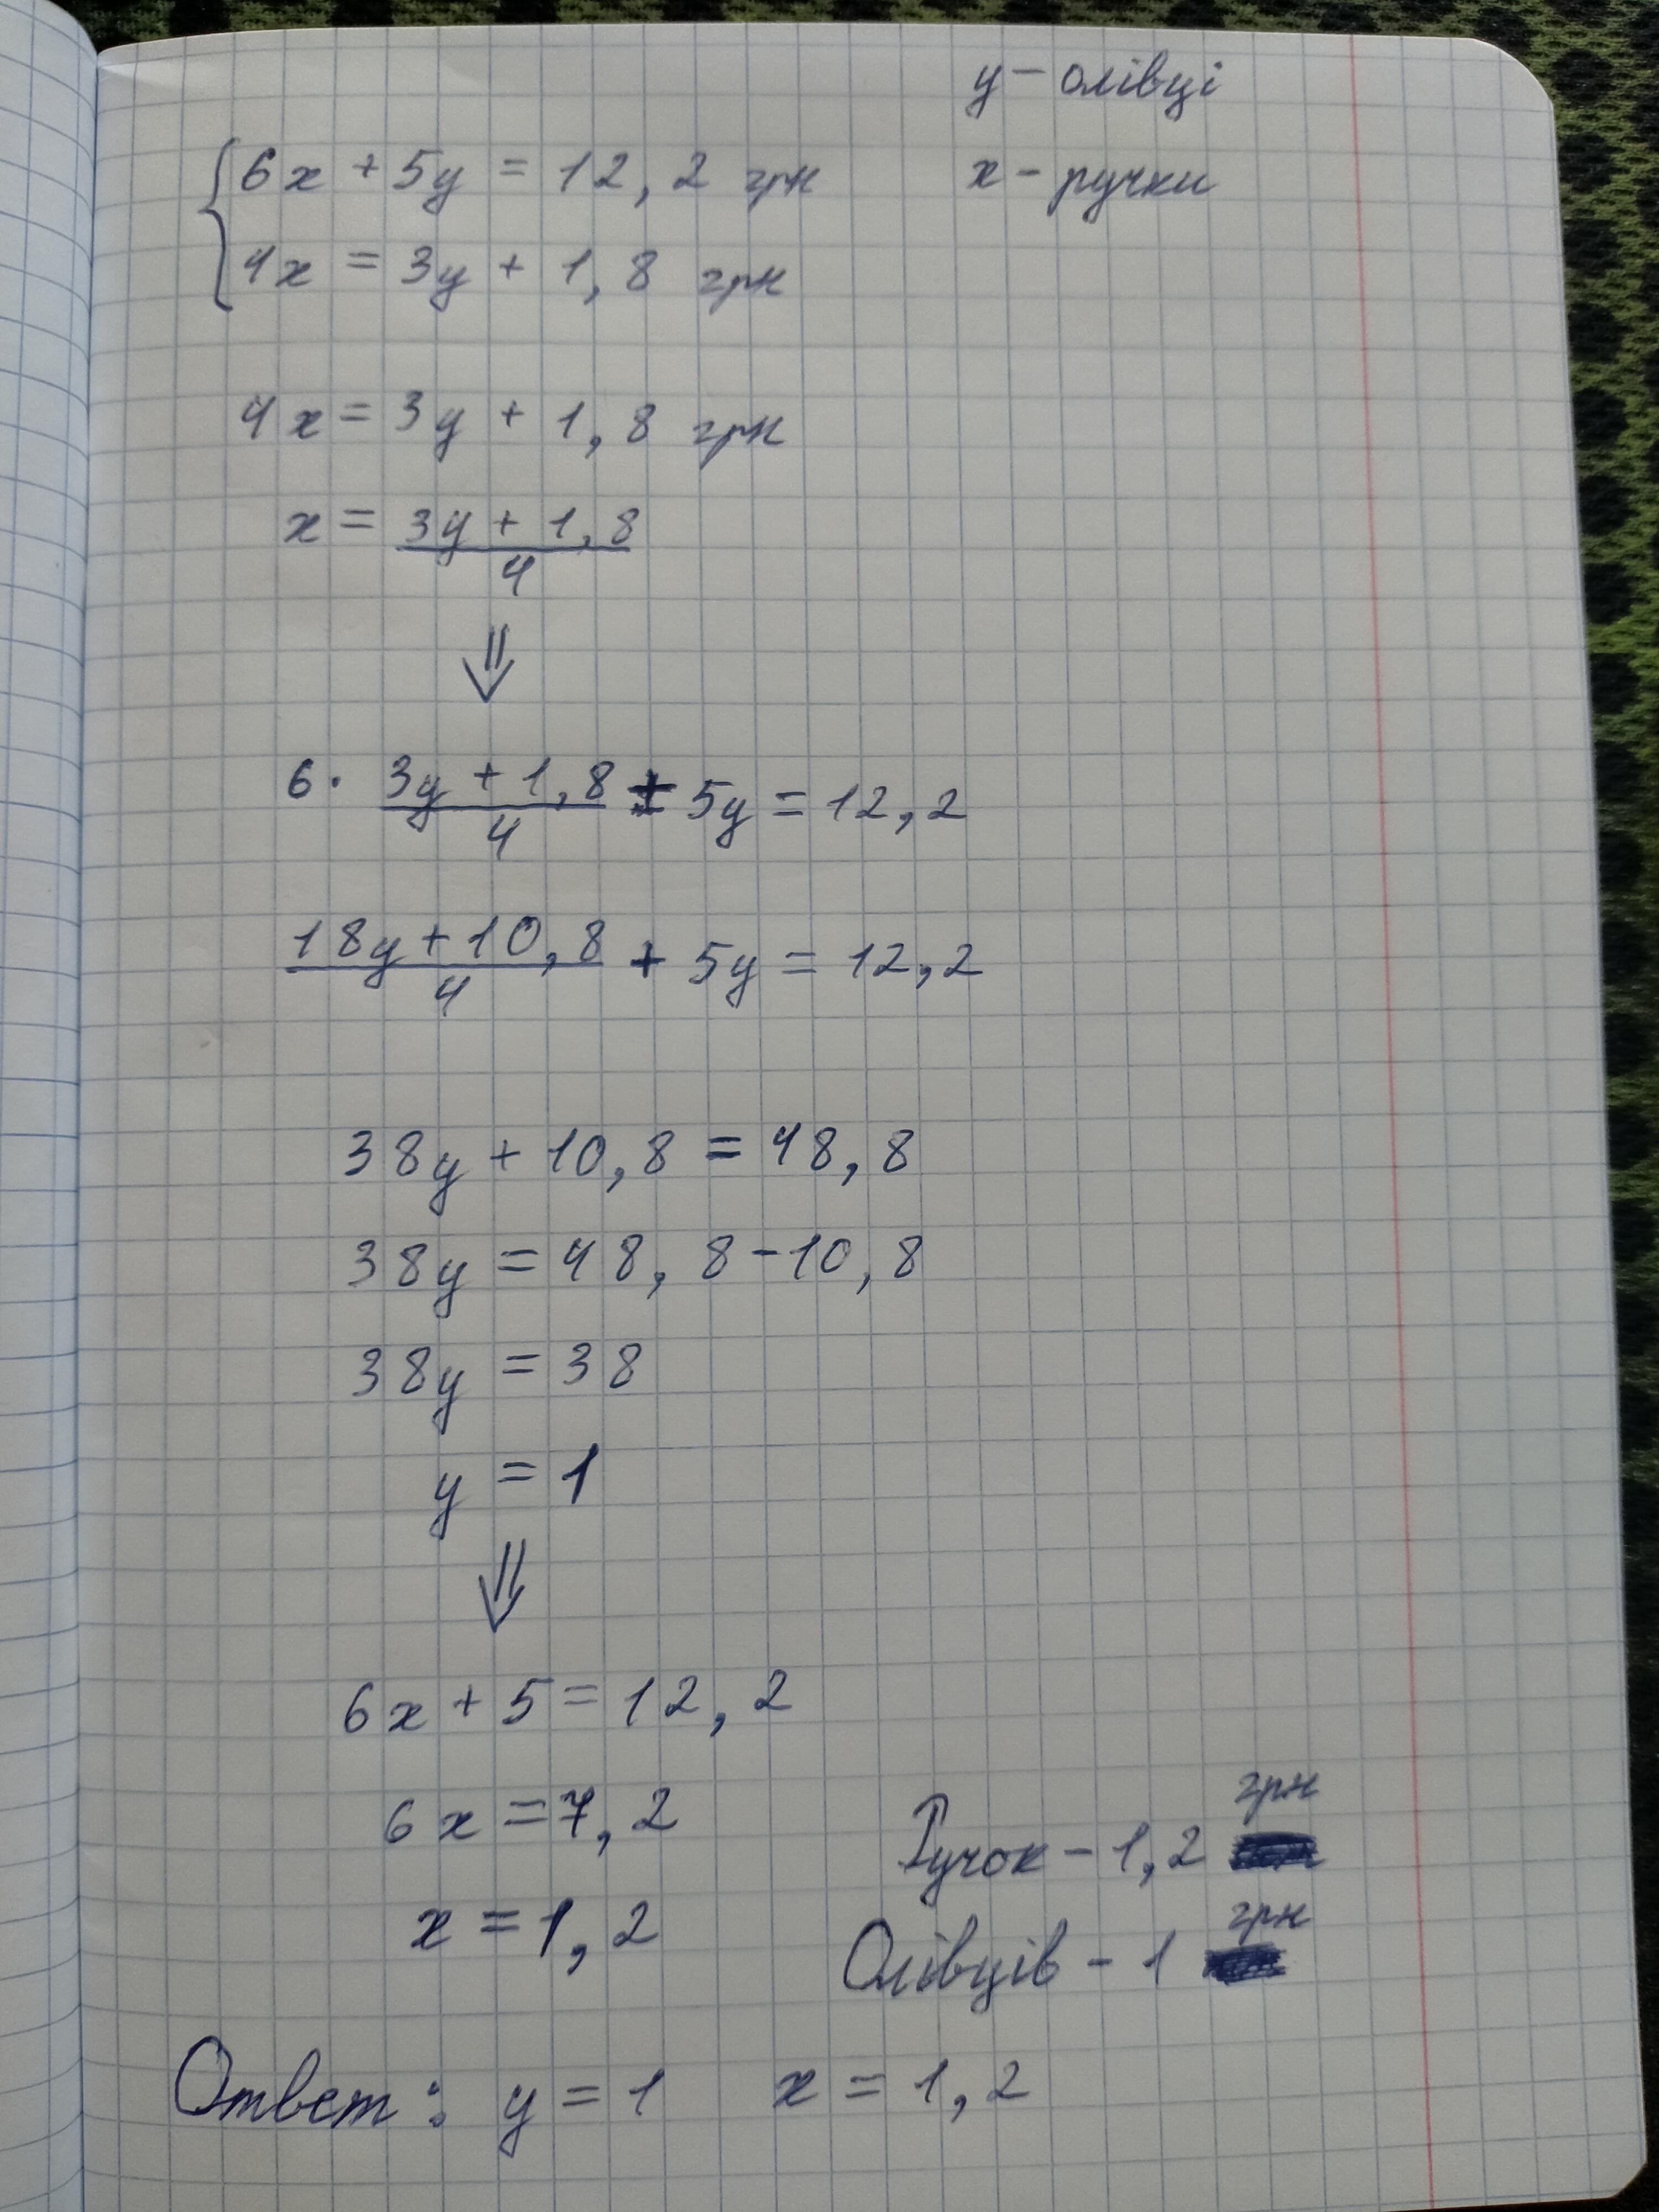 y - олівці
6x + 5y = 12,2 грн
x - ручки
4x = 3y + 1,8 грн
4x = 3y + 1,8 грн
x = 3y + 1,8
4
⇓
6 · 3y + 1,8 + 5y = 12,2
4
18y + 10,8 + 5y = 12,2
4
38y + 10,8 = 48,8
38y = 48,8 - 10,8
38y = 38
y = 1
⇓
6x + 5 = 12,2
6x = 7,2
грн
Ручок - 1,2
x = 1,2
грн
Олівців - 1
Ответ: y = 1 x = 1,2